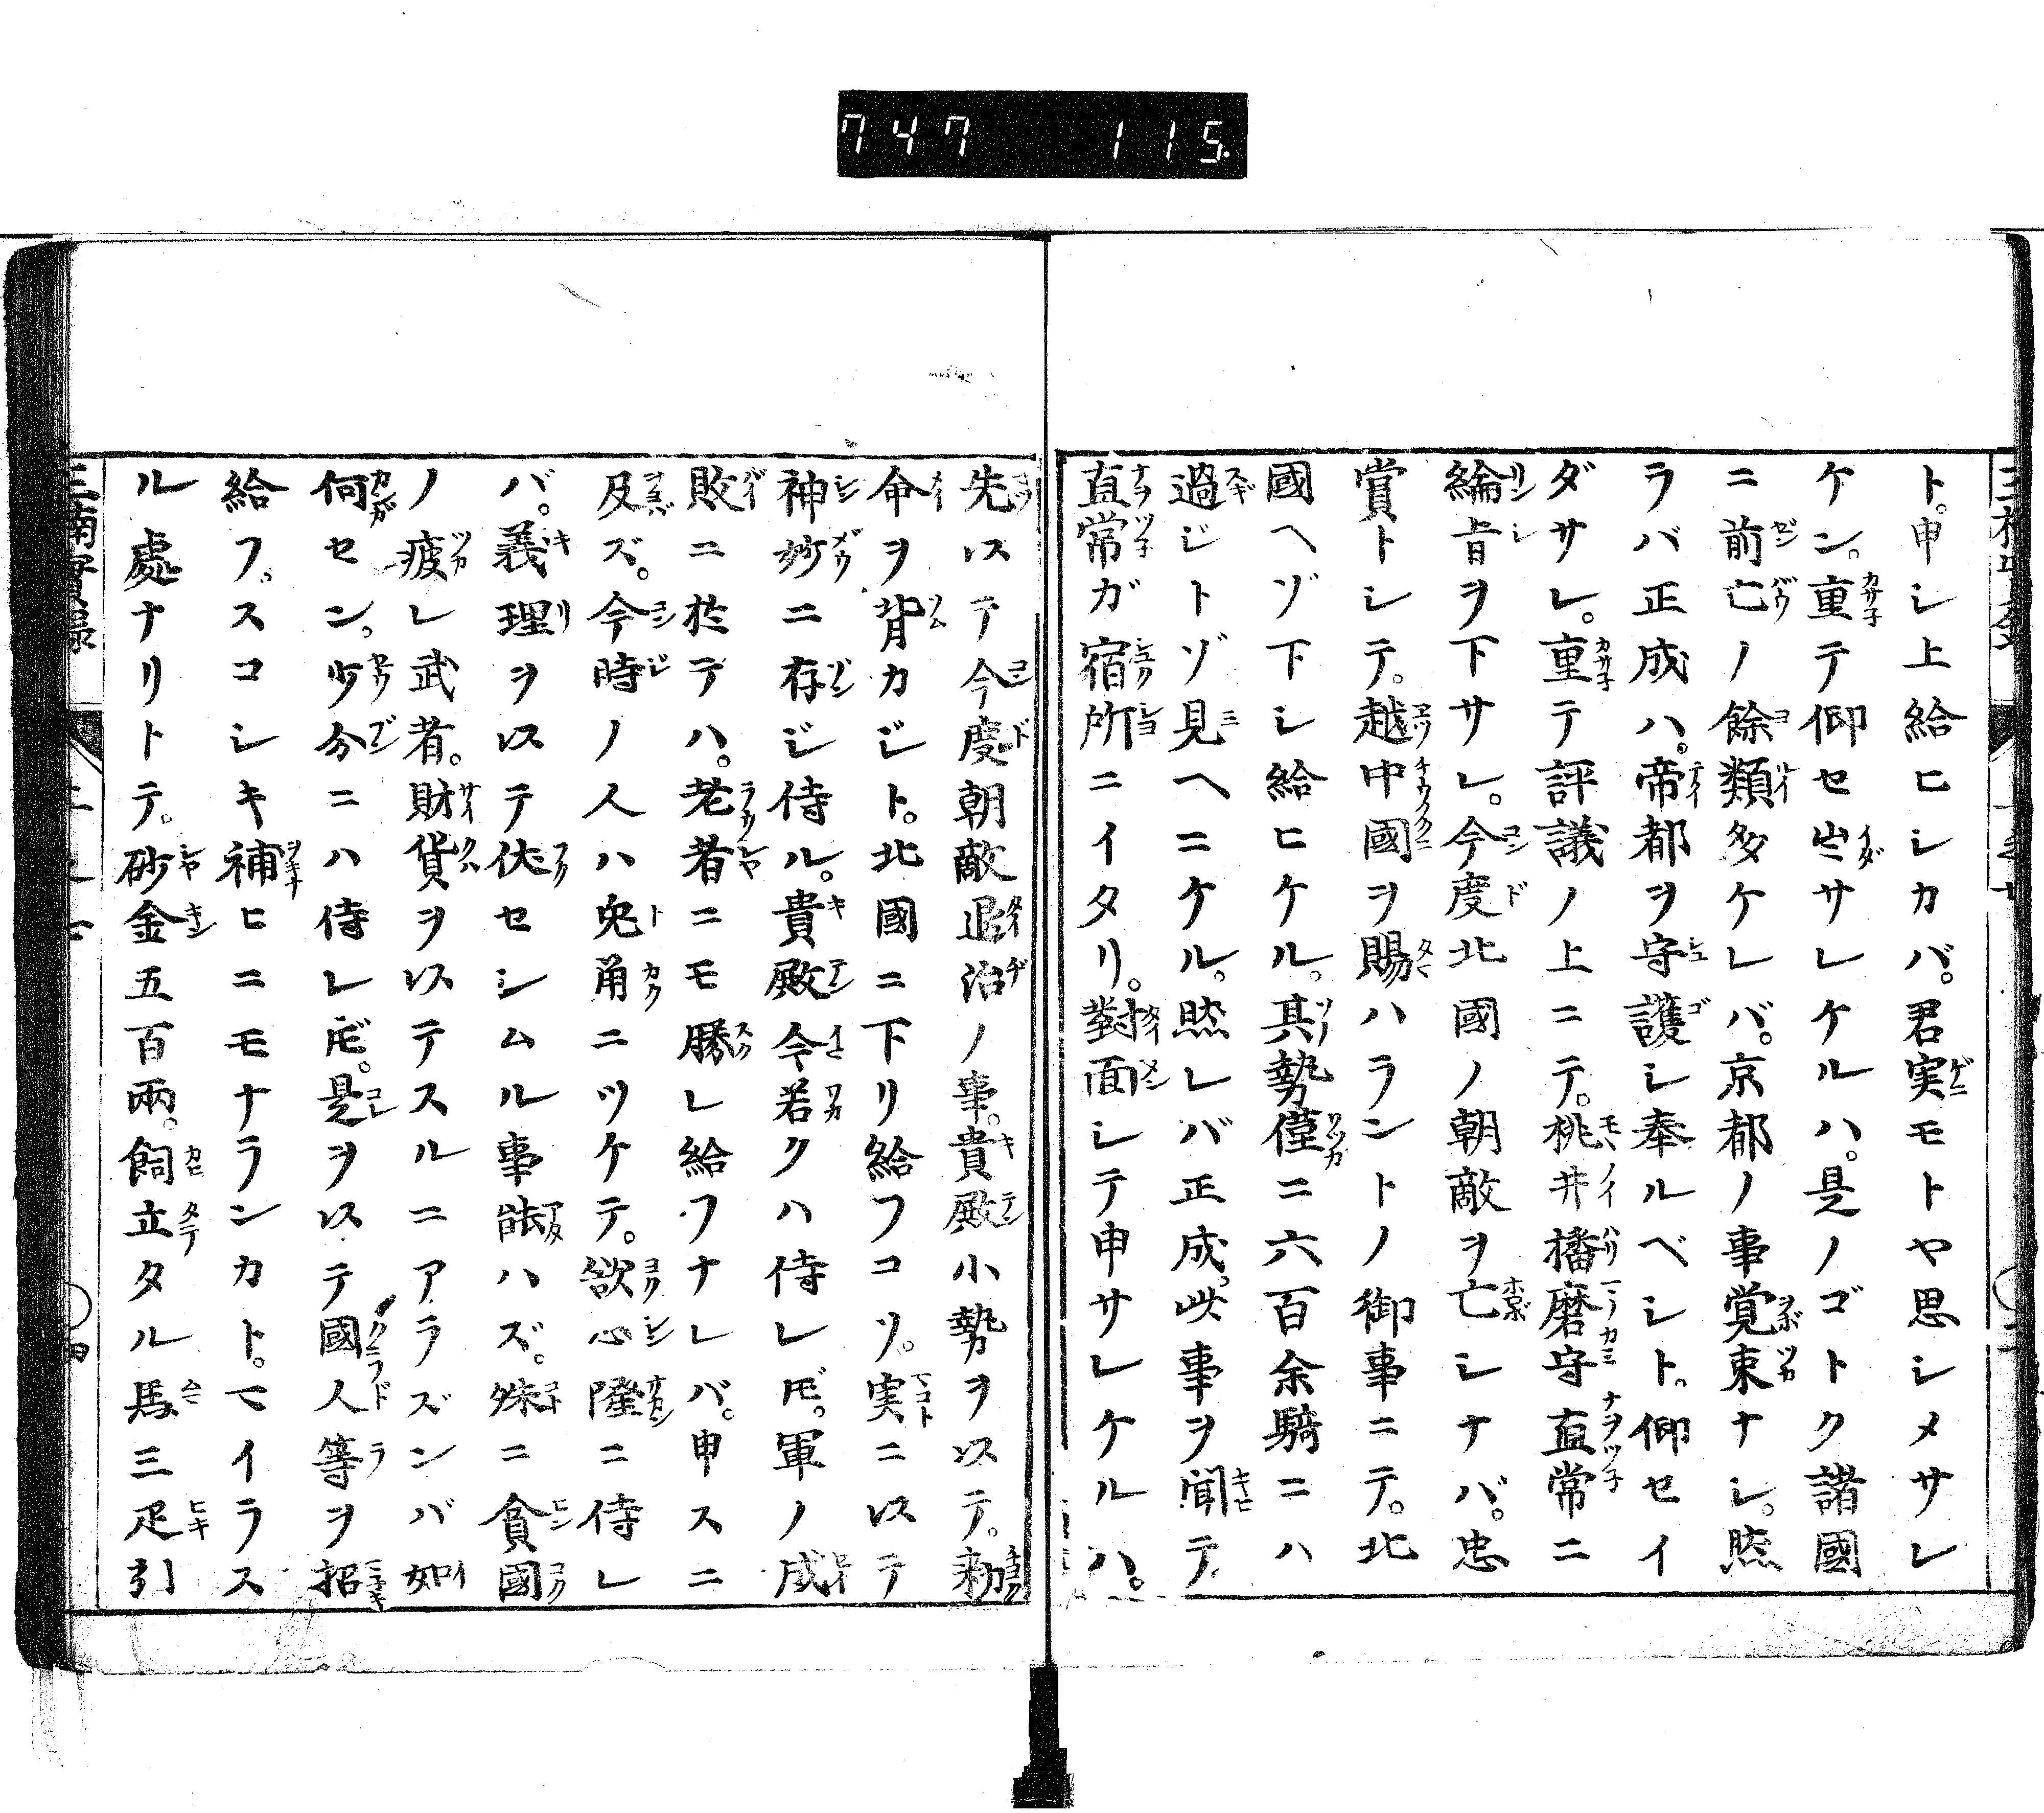 747 115
ト。申シ上給ヒシカバ。君実モトヤ思シメサレ
ケン。重テ仰セ出サレケルハ。是ノゴトク諸國
ニ前亡ノ餘類多ケレバ。京都ノ事覚束ナシ。然
ラバ正成ハ。帝都ヲ守護シ奉ルベシト。仰セイ
ダサレ。重テ評議ノ上ニテ。桃井播磨守直常ニ
綸旨ヲ下サレ。今度北國ノ朝敵ヲ亡シナバ。忠
賞トシテ。越中國ヲ賜ハラントノ御事ニテ。北
國ヘゾ下シ給ヒケル。其勢僅ニ六百余騎ニハ
過ジトゾ見ヘニケル。然レバ正成。此事ヲ聞テ
直常ガ宿所ニイタリ。對面シテ申サレケルハ。
先以テ今度朝敵退治ノ事。貴殿小勢ヲ以テ。勅
命ヲ背カジト。北國ニ下リ給フコソ。実ニ以テ
神妙ニ存ジ侍ル。貴殿今若クハ侍レ𪜈。軍ノ成
敗ニ於テハ。老者ニモ勝レ給フナレバ。申スニ
及ズ。今時ノ人ハ兎角ニツケテ。欲心隆ニ侍レ
バ。義理ヲ以テ伏セシムル事能ハズ。殊ニ貪國
ノ疲レ武者。財貨ヲ以テスルニアラズンバ如
何セン。少分ニハ侍レ𪜈。是ヲ以テ國人等ヲ招
給フ。スコシキ補ヒニモナランカト。マイラス
ル處ナリトテ。砂金五百兩。飼立タル馬三疋引